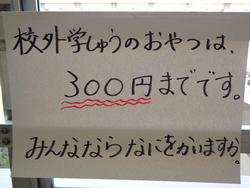 校外学しゅうのおやつは、
300円までです。
みんなならなにをかいますか。